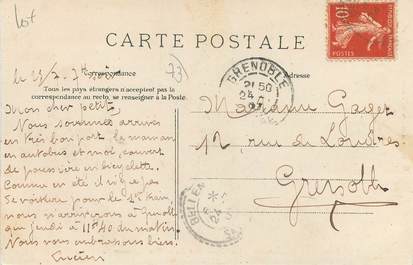 lot
CARTE POSTALE
73
Correspondance
Adresse
Tous les pays étrangers n'acceptent pas la
correspondance au recto, se renseigner à la Poste
Mon cher petit,
Nous sommes arrivés
en très bon port, la maman
en autobus et moi, couvert
de poussière en bicyclette.
Comme en été il n'y a pas
de voiture pour le 1er train,
nous n'arriverons à
que jeudi à 11h40 du matin.
Nous vous embrassons bien.
Lucien
10c
POSTES
GRENOBLE
21 50
24
Madame Gaget
12 rue de Londres
Grenoble
BELLEY
24